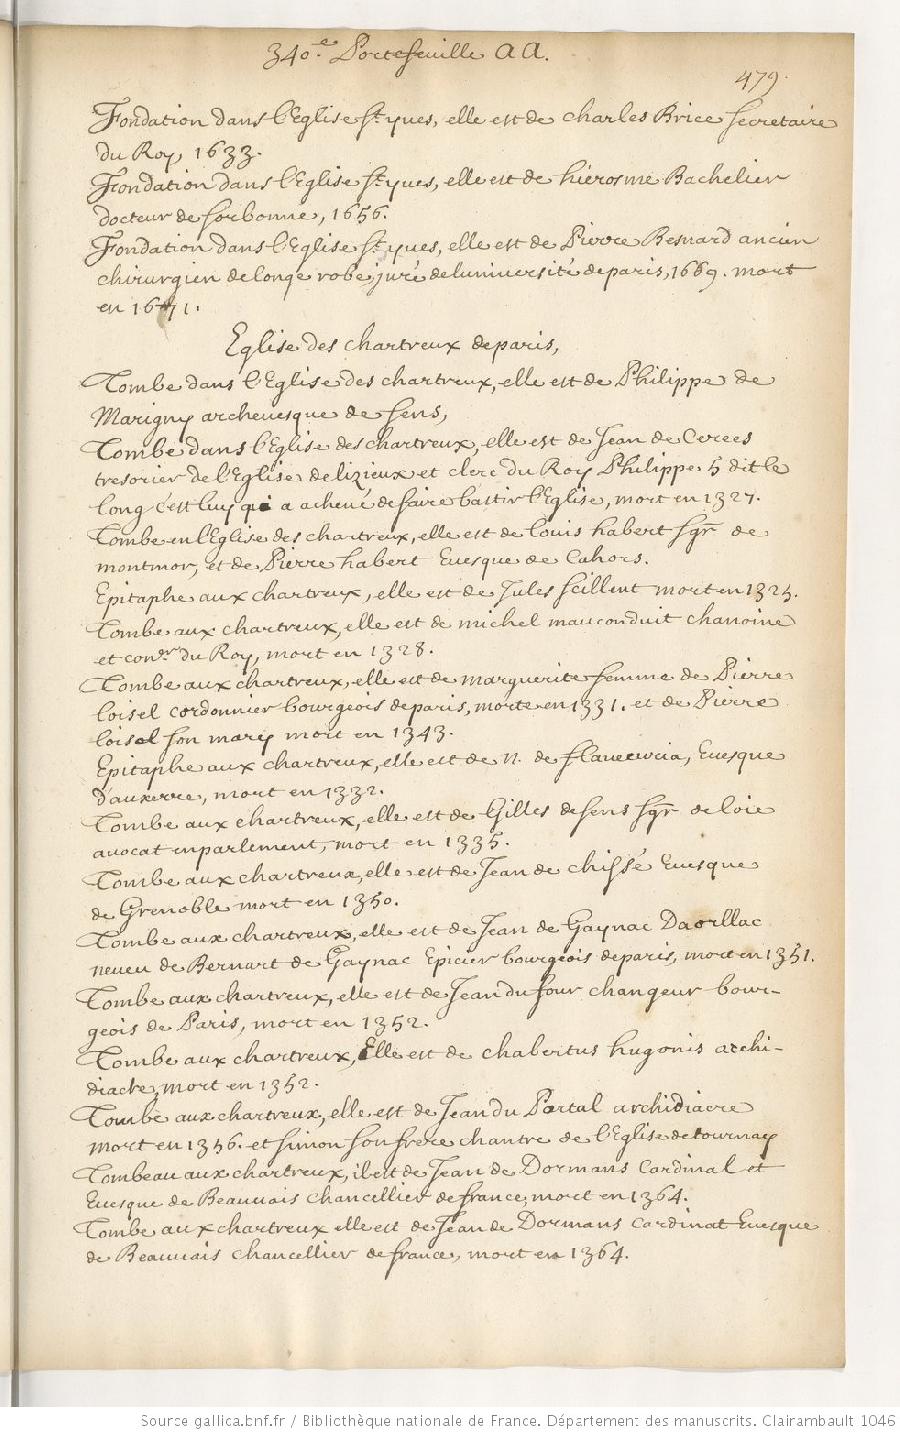 340.e Portefeuille aa.
479.
Fondation dans l'Eglise St yves, elle est de charles Brice secretaire
du Roy, 1633.
Fondation dans l'Eglise St yves, elle est de hierosme Bachelier
docteur de sorbonne, 1656.
Fondation dans l'Eglise St yves, elle est de Pierre Besnard ancien
chirurgien de longe robe juré de luniversité de paris, 1669. mort
en 1671.
Eglise des chartreux de paris,
Tombe dans l'Eglise des chartreux, elle est de Philippe de
Marigny archeuesque de sens,
Tombe dans l'Eglise des chartreux, elle est de Jean de Cerees
tresorier de l'Eglise de lizieux et clerc du Roy Philippe 5 dit le
long c'est luy qi a acheué de faire bastir l'Eglise, mort en 1327.
Tombe en l'Eglise des chartreux, elle est de louis habert sgr de
montmor, et de Pierre habert Euesque de Cahors.
Epitaphe aux chartreux, elle est de Jules scillent mort en 1325.
Tombe aux chartreux, elle est de michel mauconduit chanoine
et coner du Roy, mort en 1328.
Tombe aux chartreux, elle est de marguerite femme de Pierre
loisel cordonnier bourgeois de paris, morte en 1331. et de Pierre
loisel son mary mort en 1343.
Epitaphe aux chartreux, elle est de n. de Euesque
d'auxerre, mort en 1332.
Tombe aux chartreux, elle est de Gilles de sens sgr de loie
auocat en parlement, mort en 1335.
Tombe aux chartreux, elle est de Jean de chissé Euesque
de Grenoble mort en 1350.
Tombe aux chartreux, elle est de Jean de Gaynac Daorllac
neueu de Bernart de Gaynac Epicier bourgeois de paris, mort en 1351.
Tombe aux chartreux, elle est de Jean du four changeur bour-
geois de Paris, mort en 1352.
Tombe aux chartreux, Elle est de chabertus hugonis archi-
diacre, mort en 1352.
Tombe aux chartreux, elle est de Jean du Portal archidiacre
mort en 1356. et simon son frere chantre de l'Eglise de tournay
Tombeau aux chartreux, il est de Jean de Dormans Cardinal et
Euesque de Beauuais chancellier de france, mort en 1364.
Tombe aux chartreux elle est de Jean de Dormans Cardinal Euesque
de Beauuais chancellier de france, mort en 1364.
Source gallica.bnf.fr / Bibliothèque nationale de France. Département des manuscrits. Clairambault 1046